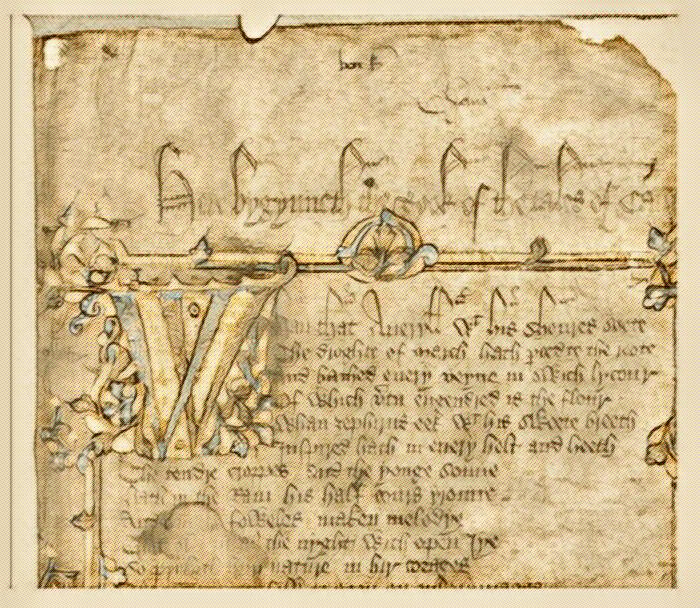 Here bygynneth the Book of the tales of
Whan that Aueryll wt his shoures soote
The droghte of March hath perced to the roote
And bathed euery veyne in swich lycour
Of which vtu engendred is the flour
Whan zephirus eek wt his sweete breeth
Inspired hath in euery holt and heeth
The tendre croppes and the yonge sonne
Hath in the Ram his half cours yronne
foweles maken melodye
the nyght with open Iye
So priketh nature in hir corages